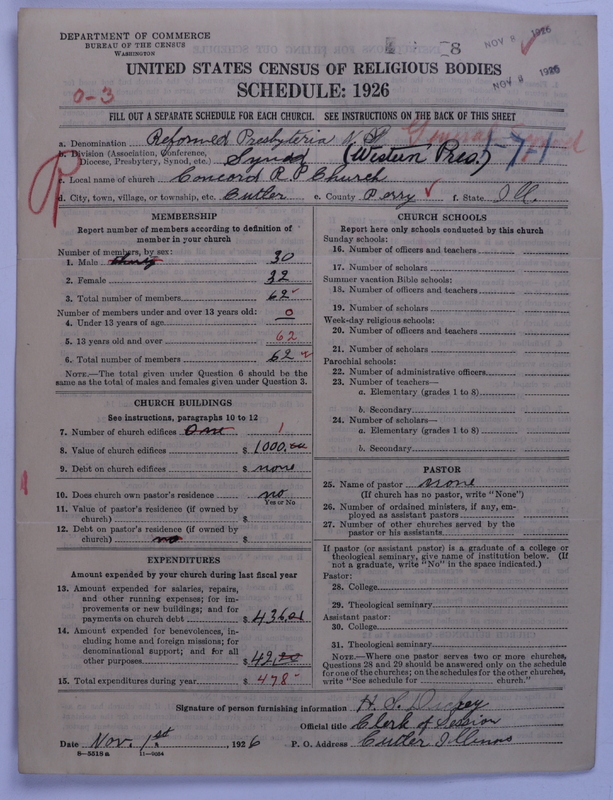 DEPARTMENT OF COMMERCE
BUREAU OF THE CENSUS
WASHINGTON
8
NOV 8 1926
NOV 8 1926
UNITED STATES CENSUS OF RELIGIOUS BODIES
SCHEDULE: 1926
0-3
FILL OUT A SEPARATE SCHEDULE FOR EACH CHURCH. SEE INSTRUCTIONS ON THE BACK OF THIS SHEET
a. Denomination Reformed Presbyteria N. A. General Synod
b. Division (Association, Conference, Diocese, Presbytery, Synod, etc.) Synod (Western Pres.)
c. Local name of church Concord R. P. Church
d. City, town, village, or township, etc. Cutler e. County Perry f. State Ill.
MEMBERSHIP
Report number of members according to definition of
member in your church
Number of members, by sex:
1. Male thirty 30
2. Female 32
3. Total number of members 62
Number of members under and over 13 years old:
4. Under 13 years of age 0
5. 13 years old and over 62
6. Total number of members 62
NOTE.—The total given under Question 6 should be the
same as the total of males and females given under Question 3.
CHURCH BUILDINGS
See instructions, paragraphs 10 to 12
7. Number of church edifices One 1
8. Value of church edifices $ 1000.00
9. Debt on church edifices $ none
10. Does church own pastor's residence no
Yes or No
11. Value of pastor's residence (if owned by
church) $
12. Debt on pastor's residence (if owned by
church) no $
EXPENDITURES
Amount expended by your church during last fiscal year
13. Amount expended for salaries, repairs,
and other running expenses; for im-
provements or new buildings; and for
payments on church debt $ 436.01
14. Amount expended for benevolences, in-
cluding home and foreign missions; for
denominational support; and for all
other purposes $ 42.20
15. Total expenditures during year $ 478
CHURCH SCHOOLS
Report here only schools conducted by this church
Sunday schools:
16. Number of officers and teachers
17. Number of scholars
Summer vacation Bible schools:
18. Number of officers and teachers
19. Number of scholars
Week-day religious schools:
20. Number of officers and teachers
21. Number of scholars
Parochial schools:
22. Number of administrative officers
23. Number of teachers—
a. Elementary (grades 1 to 8)
b. Secondary
24. Number of scholars—
a. Elementary (grades 1 to 8)
b. Secondary
PASTOR
25. Name of pastor none
(If church has no pastor, write "None")
26. Number of ordained ministers, if any, em-
ployed as assistant pastors
27. Number of other churches served by the
pastor or his assistants
If pastor (or assistant pastor) is a graduate of a college or
theological seminary, give name of institution below. (If
not a graduate, write "No" in the space indicated.)
Pastor:
28. College
29. Theological seminary
Assistant pastor:
30. College
31. Theological seminary
NOTE.—Where one pastor serves two or more churches,
Questions 28 and 29 should be answered only on the schedule
for one of the churches; on the schedules for the other churches,
write "See schedule for church."
Signature of person furnishing information H. S. Dickey
Official title Clerk of Session
Date Nov. 1st, 1926 P. O. Address Cutler Illinois
8-5518a 11-9064